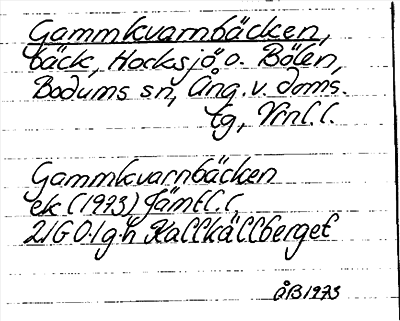 Gammkvarnbäcken,
bäck, Hocksjö o. Bölen,
Bodums sn, Ång. v. doms.
tg, Vrnl.l.
Gammkvarnbäcken
ek (1973) Jämtl.l.
21G 0-1 g-h Kallkällberget
ÅB 1973